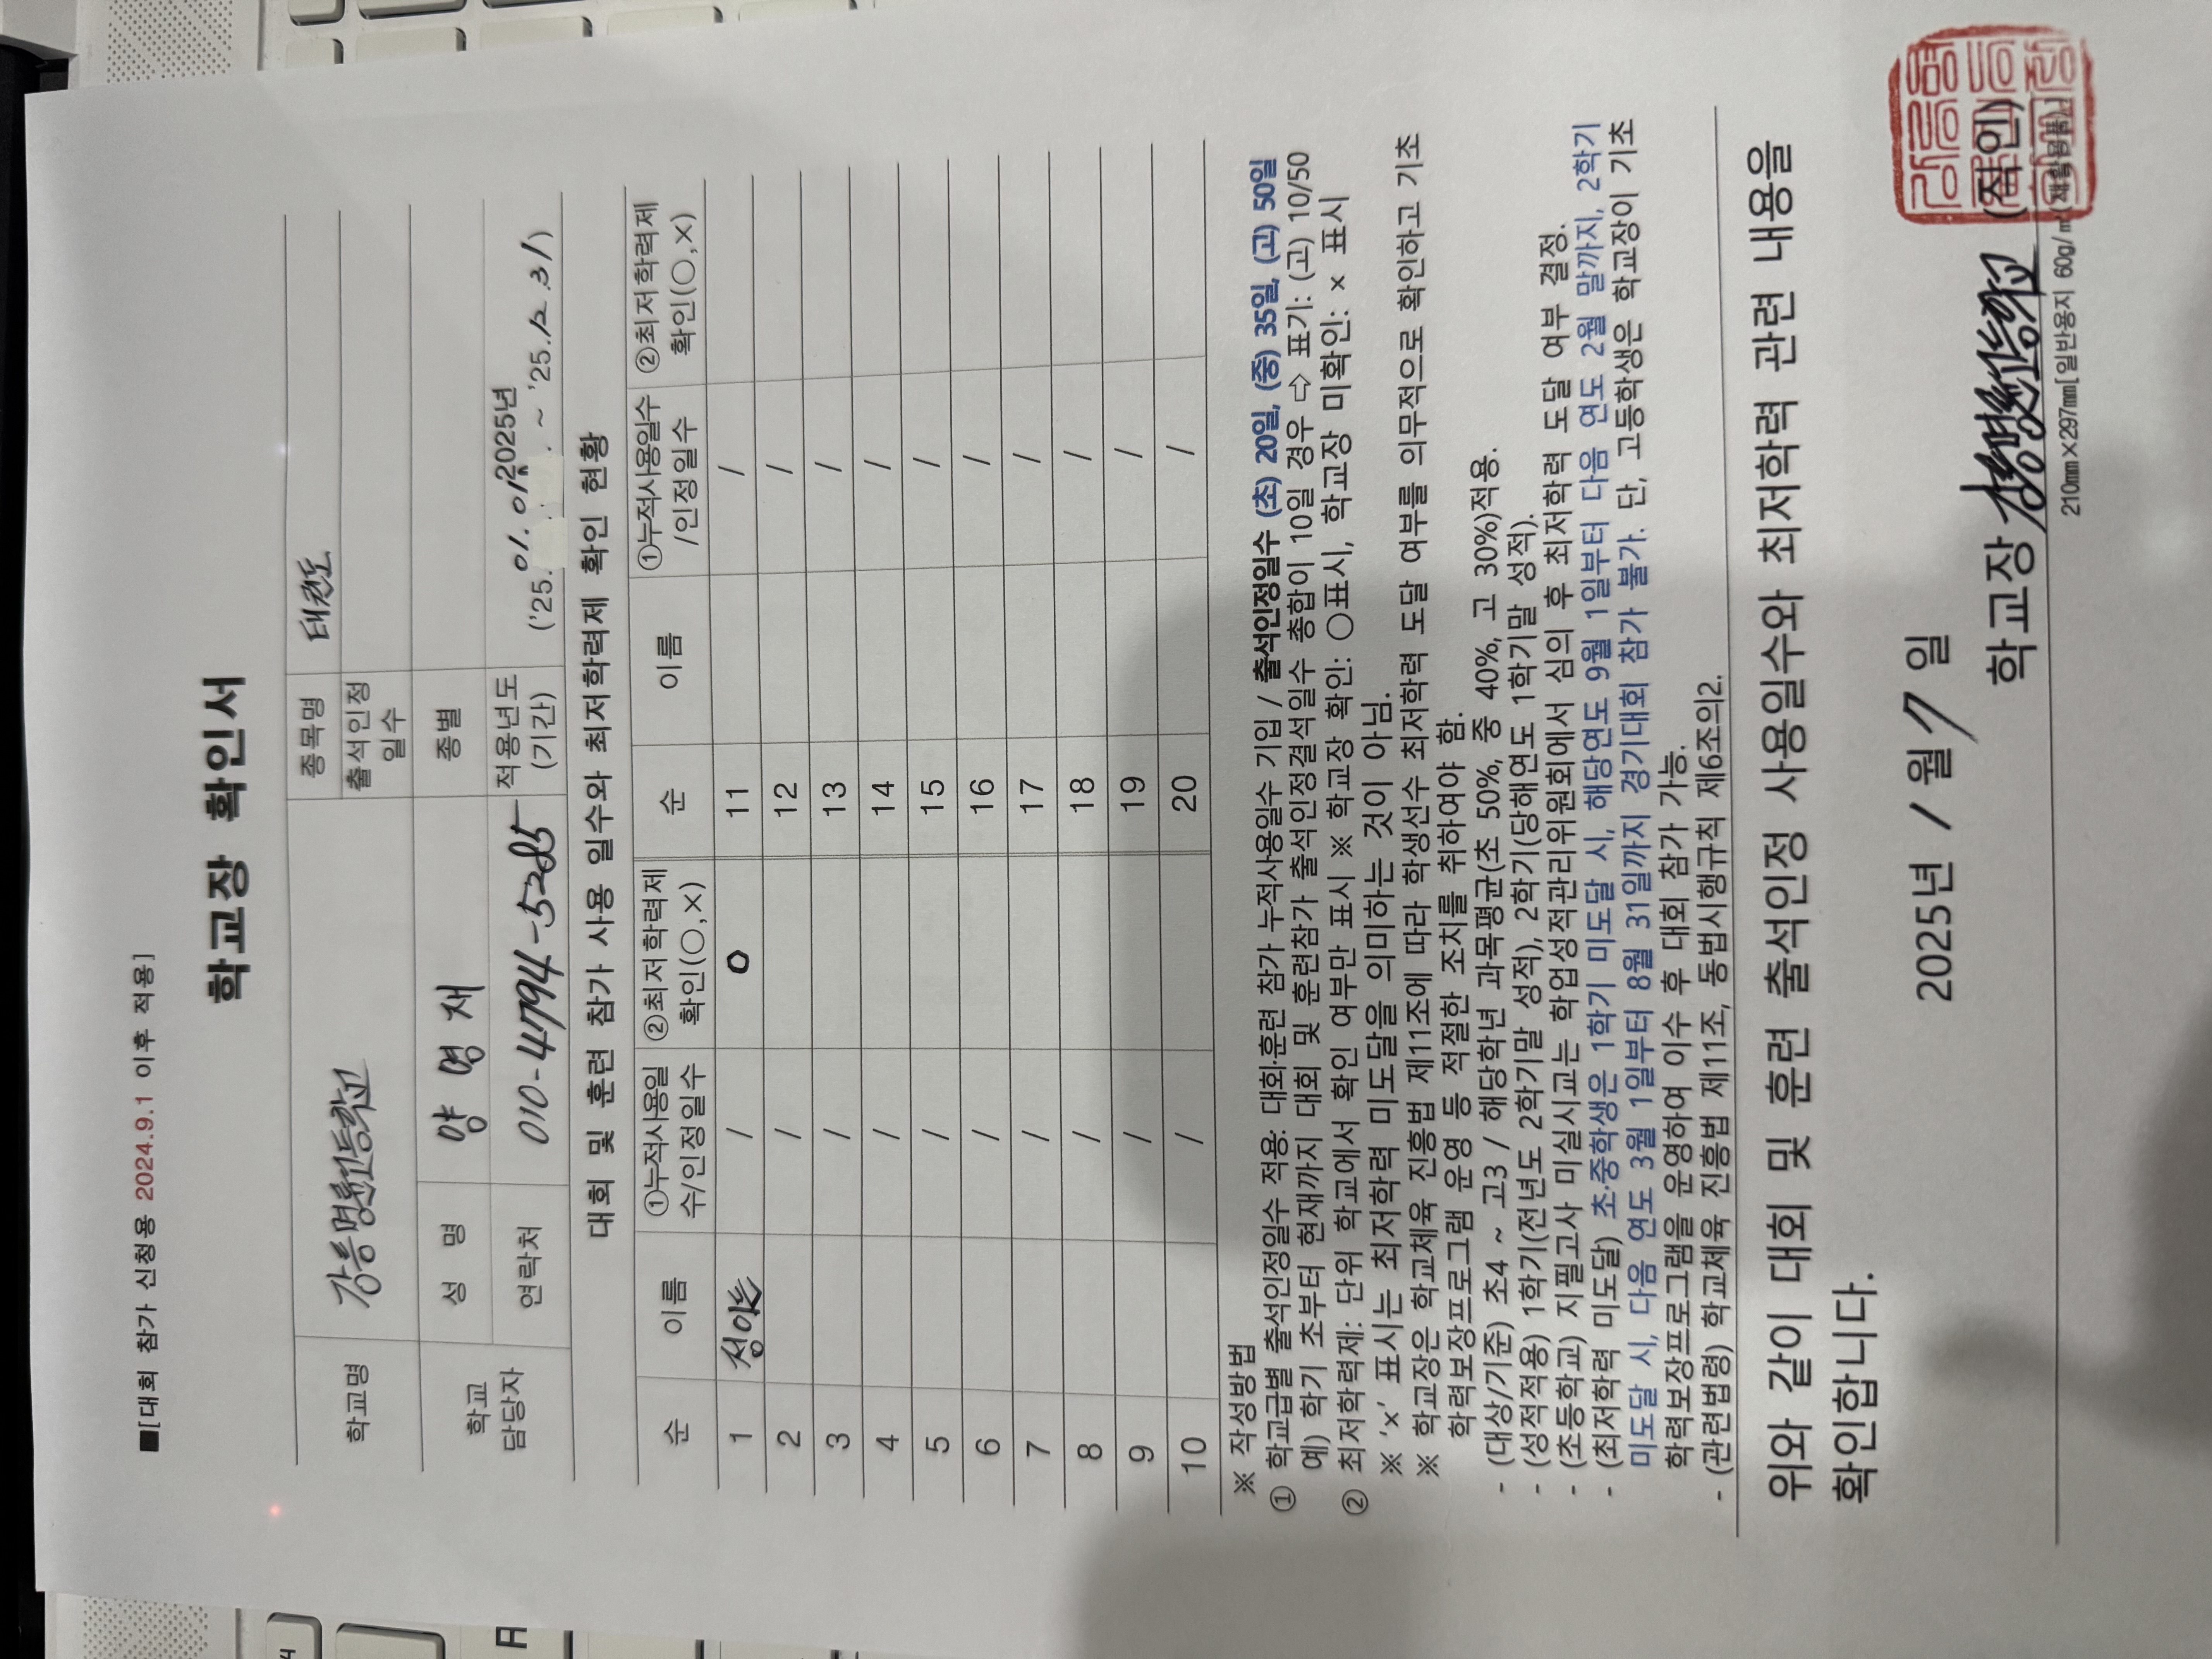 ■[대회 참가 신청용 2024.9.1 이후 적용]
학교장 확인서
학교명 강릉명륜고등학교 종목명 태권도
출석인정
일수
학교
담당자 성 명 양 명 재 종별
연락처 010-4794-5285 적용년도
(기간) 2025년
('25. 01. 01. ~ '25. 12. 31)
대회 및 훈련 참가 사용 일수와 최저학력제 확인 현황
순 이름 ①누적사용일
수/인정일수 ②최저학력제
확인(○,×) 순 이름 ①누적사용일수
/인정일수 ②최저학력제
확인(○,×)
1 / O 11 /
2 / 12 /
3 / 13 /
4 / 14 /
5 / 15 /
6 / 16 /
7 / 17 /
8 / 18 /
9 / 19 /
10 / 20 /
※ 작성방법
① 학교급별 출석인정일수 적용: 대회·훈련 참가 누적사용일수 기입 / 출석인정일수 (초) 20일, (중) 35일, (고) 50일
예) 학기 초부터 현재까지 대회 및 훈련참가 출석인정결석일수 총합이 10일 경우 ⇨ 표기: (고) 10/50
② 최저학력제: 단위 학교에서 확인 여부만 표시 ※ 학교장 확인: ○표시, 학교장 미확인: × 표시
※ 'x' 표시는 최저학력 미도달을 의미하는 것이 아님.
※ 학교장은 학교체육 진흥법 제11조에 따라 학생선수 최저학력 도달 여부를 의무적으로 확인하고 기초
학력보장프로그램 운영 등 적절한 조치를 취하여야 함.
- (대상/기준) 초4 ~ 고3 / 해당학년 과목평균(초 50%, 중 40%, 고 30%)적용.
- (성적적용) 1학기(전년도 2학기말 성적), 2학기(당해연도 1학기말 성적).
- (초등학교) 지필고사 미실시교는 학업성적관리위원회에서 심의 후 최저학력 도달 여부 결정.
- (최저학력 미도달) 초·중학생은 1학기 미도달 시, 해당연도 9월 1일부터 다음 연도 2월 말까지, 2학기
미도달 시, 다음 연도 3월 1일부터 8월 31일까지 경기대회 참가 불가. 단, 고등학생은 학교장이 기초
학력보장프로그램을 운영하여 이수 후 대회 참가 가능.
- (관련법령) 학교체육 진흥법 제11조, 동법시행규칙 제6조의2.
위와 같이 대회 및 훈련 출석인정 사용일수와 최저학력 관련 내용을
확인합니다.
2025년 1월 7일
학교장 강릉명륜고등학교 (직인)
210㎜×297㎜[일반용지 60g/㎡(재활용품)]